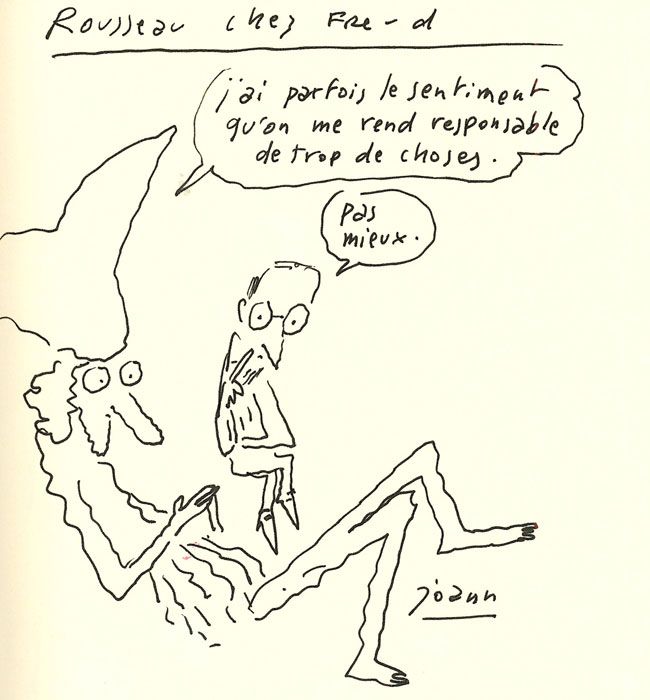 Rousseau chez Fre-d
j'ai parfois le sentiment
qu'on me rend responsable
de trop de choses.
pas
mieux.
joann